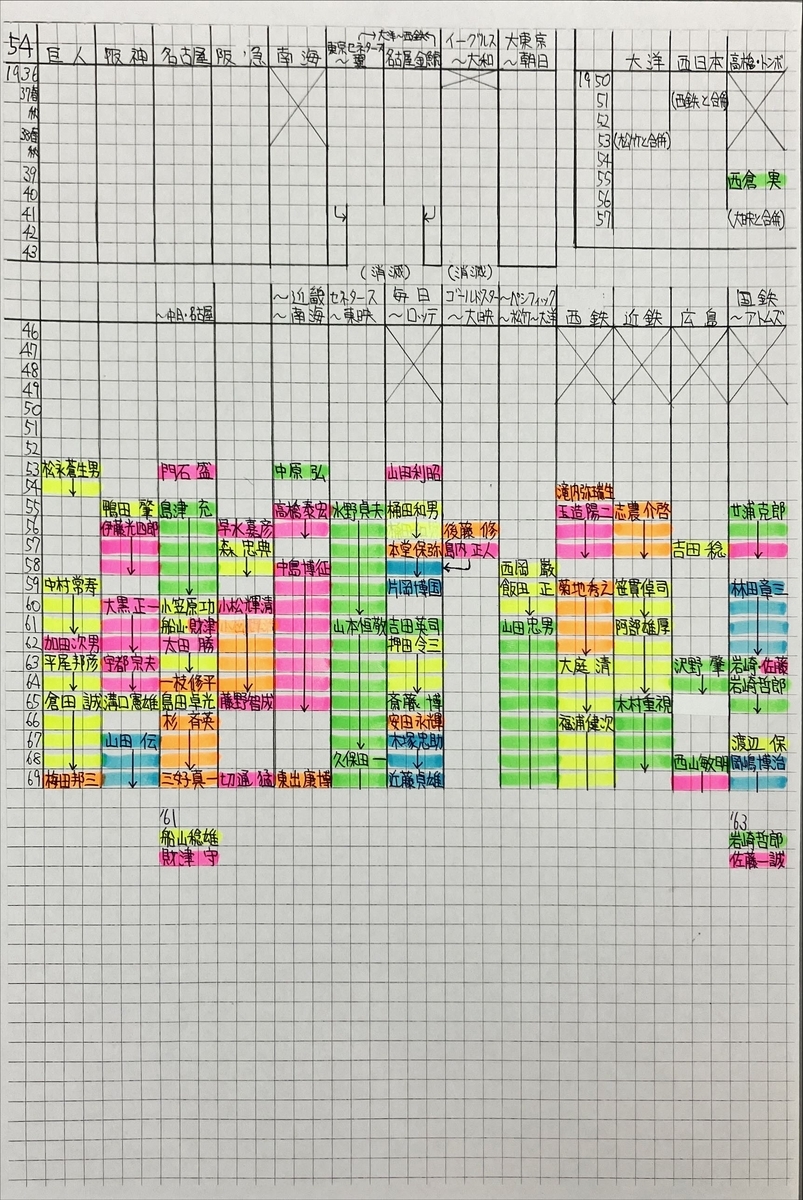 54 巨人 阪神 名古屋 阪急 南海 東京セネタース～翼 (→大洋～西鉄←) 名古屋金鯱 イーグルス～大和 大東京～朝日
大洋 西日本 高橋・トンボ
1936
37春
秋
38春
秋
39
40
41
42
43
1950
51 (西鉄と合併)
52
53 (松竹と合併)
54
55 西倉 実
56
57 (大映と合併)
(消滅) (消滅)
～中日・名古屋 ～近畿～南海 セネタース～東映 毎日～ロッテ ゴールドスター～大映 ～パシフィック～松竹～大洋 西鉄 近鉄 広島 国鉄～アトムズ
46
47
48
49
50
51
52
53 松永蒼生男 門石 盛 中原 弘 山田利昭
54 滝内弥瑞生
55 鴨田 肇 島津 充 高橋泰宏 水野貞夫 植田和男 玉造陽二 志農介啓 廿浦克郎
56 伊藤光四郎 早水嘉彦 後藤 修
57 森 忠典 本堂保弥 島内正人 吉田 稔
58 中島博征 西岡 巌
59 中村常寿 片岡博国 飯田 正 菊地秀之 笹貫倬司 林田章三
60 大黒正一 小笠原功 小松輝清
61 船山・財津 山本恒敬 吉田英司 山田忠男 阿部雄厚
62 加田次男 太田 勝 押田令三
63 平尾邦彦 宇部宗夫 大庭 清 沢野 肇 岩崎・佐藤
64 一枝修平 岩崎哲郎
65 倉田 誠 溝口憲雄 島田卓光 藤野智成 斎藤 博 木村重視
66 杉 斉英 安田永輝 福浦健次
67 山田 伝 木塚忠助 渡辺 保
68 久保田一 西山敏明 岡嶋博治
69 梅田邦三 三好真一 切通 猛 東出康博 近藤貞雄
'61
船山稔雄
財津 守
'63
岩崎哲郎
佐藤一誠